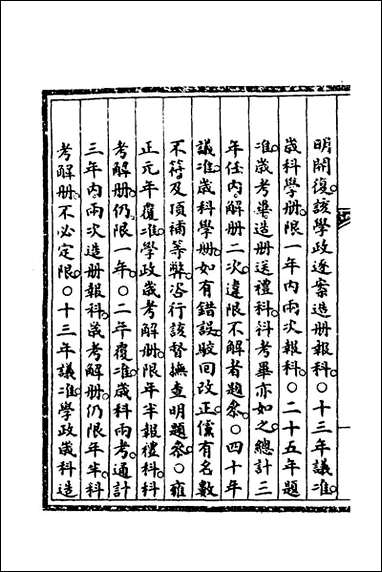 明開復該學政逐案造册報科○十三年議准
歲科學册限一年內兩次報科○二十五年題
准歲考畢造册送禮科科考畢亦如之總計三
年任內解册二次違限不解者題叅○四十年
議准歲科學册如有錯誤駮回改正儻有名數
不符及頂補等弊咨行該督撫查明題叅○雍
正元年覆准學政歲考解册限年半報禮科科
考解册仍限一年○二年覆准歲科兩考通計
三年內兩次造册報科歲考解册仍限年半科
考解册不必定限○十三年議准學政歲科造